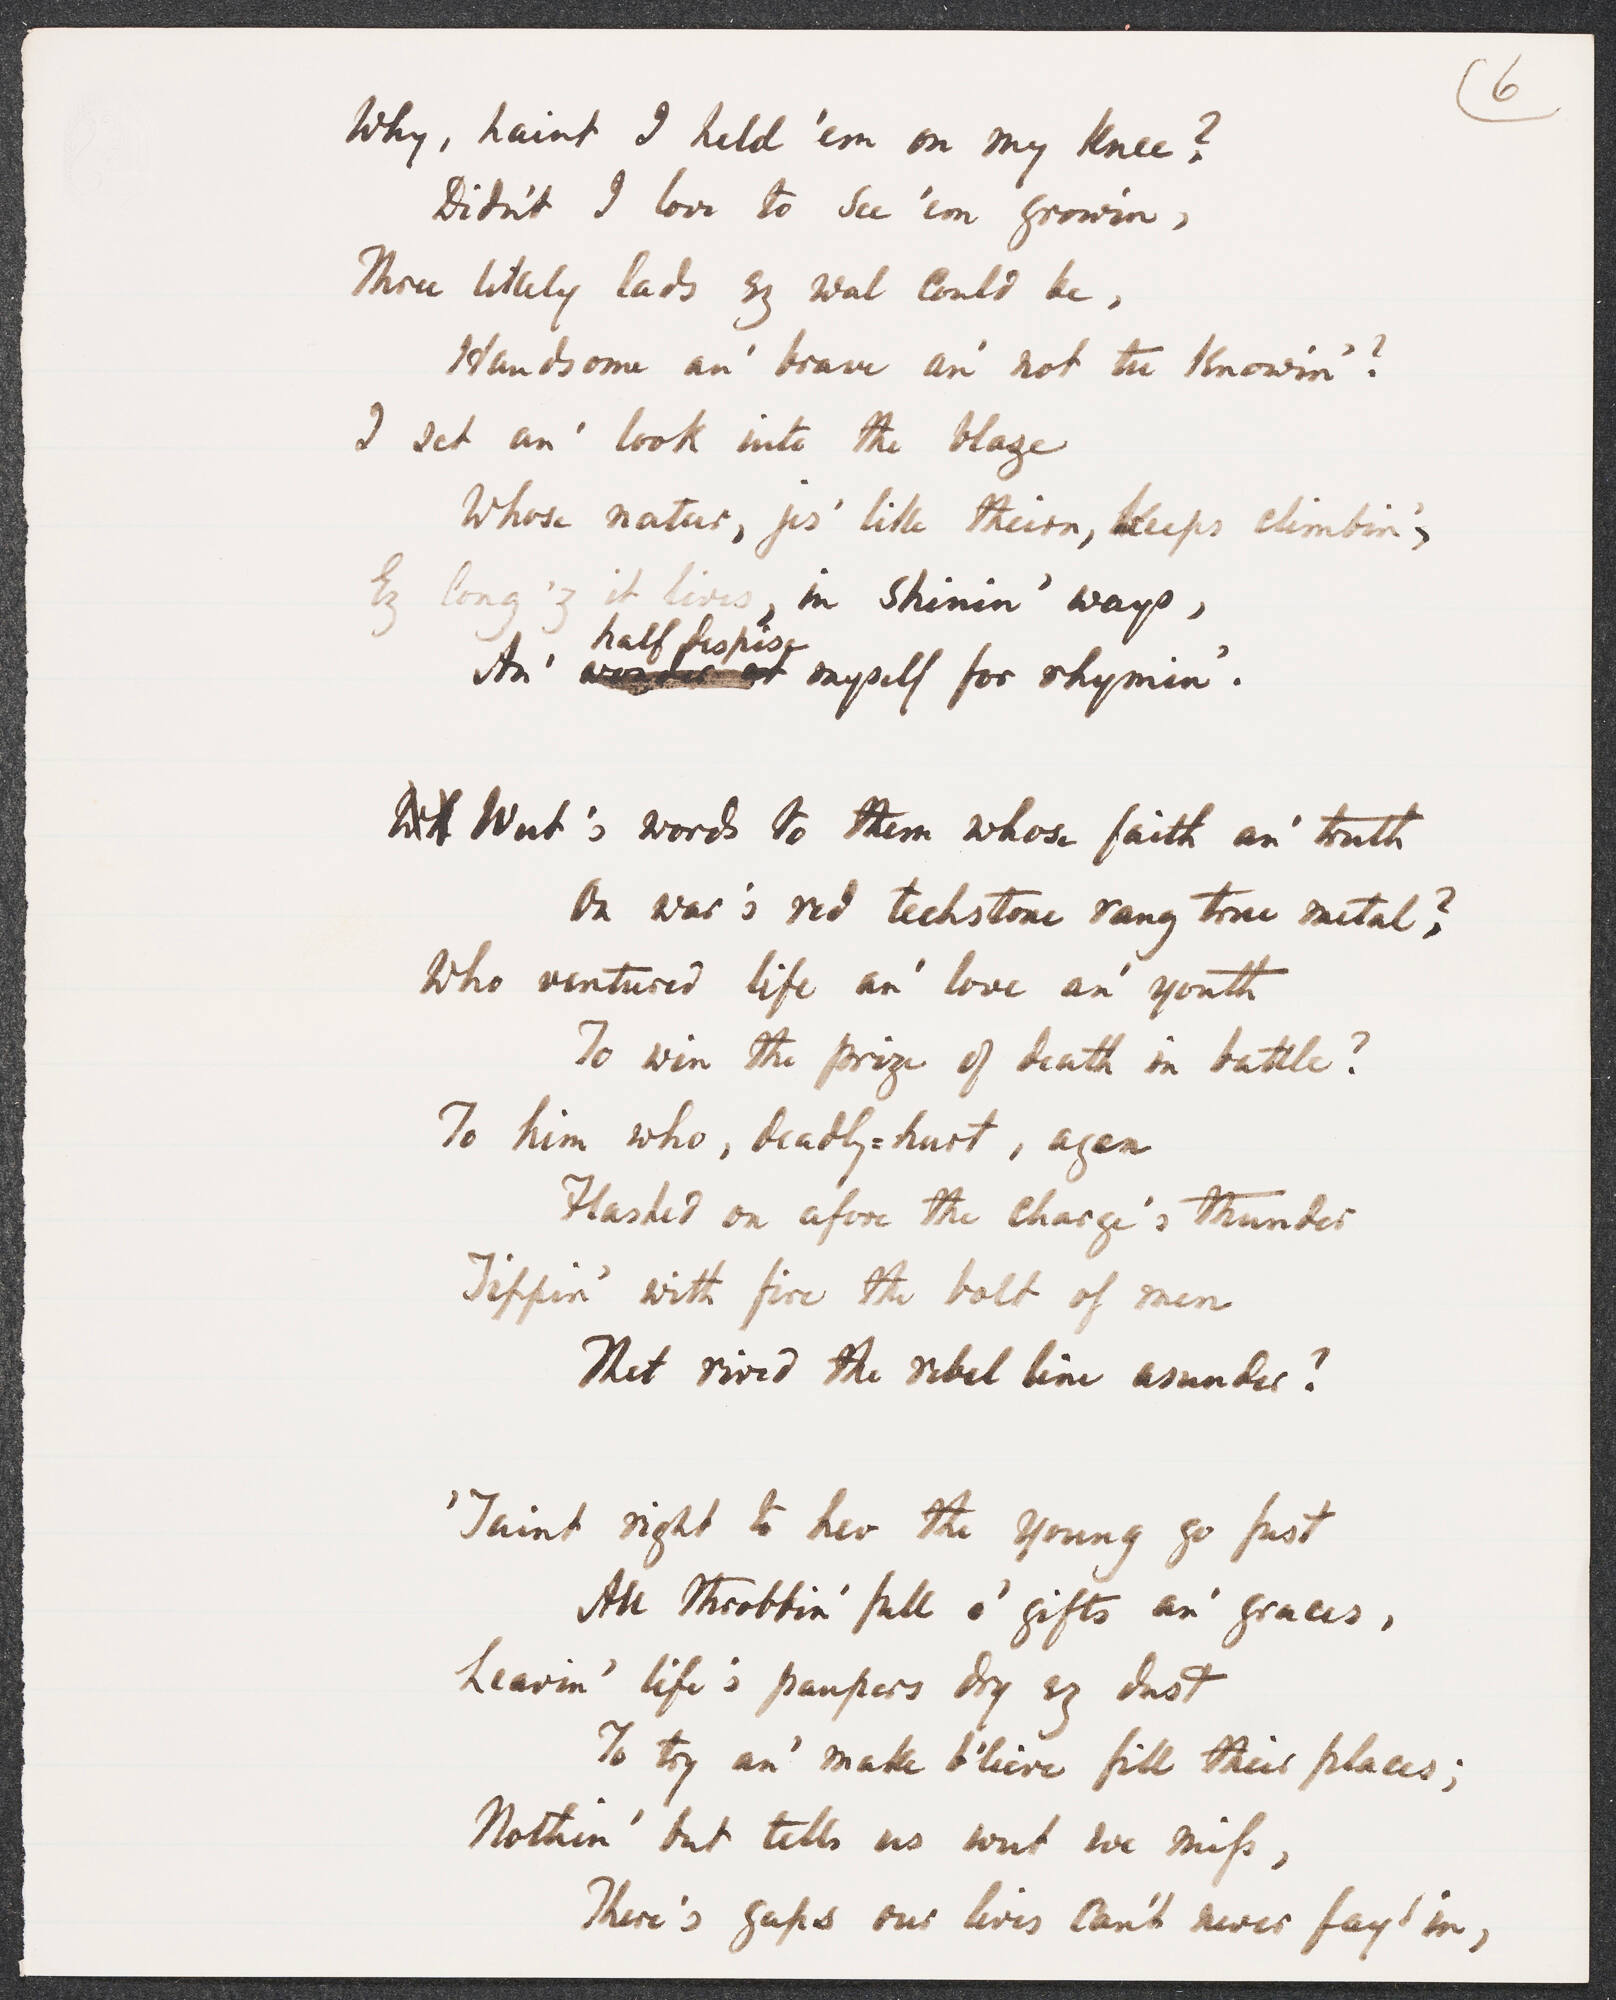 6
Why, haint I held 'em on my knee?
Didn't I love to see 'em growin,
Three likely lads ez wal could be,
Handsome an' brave an' not tu knowin'?
I set an' look into the blaze
Whose natur, jes' like theirn, keeps climbin',
Ez long 'z it lives, in shinin' ways,
half despise
An' wonder at myself for rhymin'.
Wut's words to them whose faith an' truth
On war's red techstone rang true metal?
Who ventured life an' love an' youth
To win the prize of death in battle?
To him who, deadly-hurt, agen
Flashed on afore the charge's thunder
Tippin' with fire the bolt of men
Thet rived the rebel line asunder?
'Taint right to hev the young go fust
All throbbin' full o' gifts an' graces,
Leavin' life's paupers dry ez dust
To try an' make b'lieve fill their places;
Nothin' but tells us wut we miss,
There's gaps our lives can't never fay in,